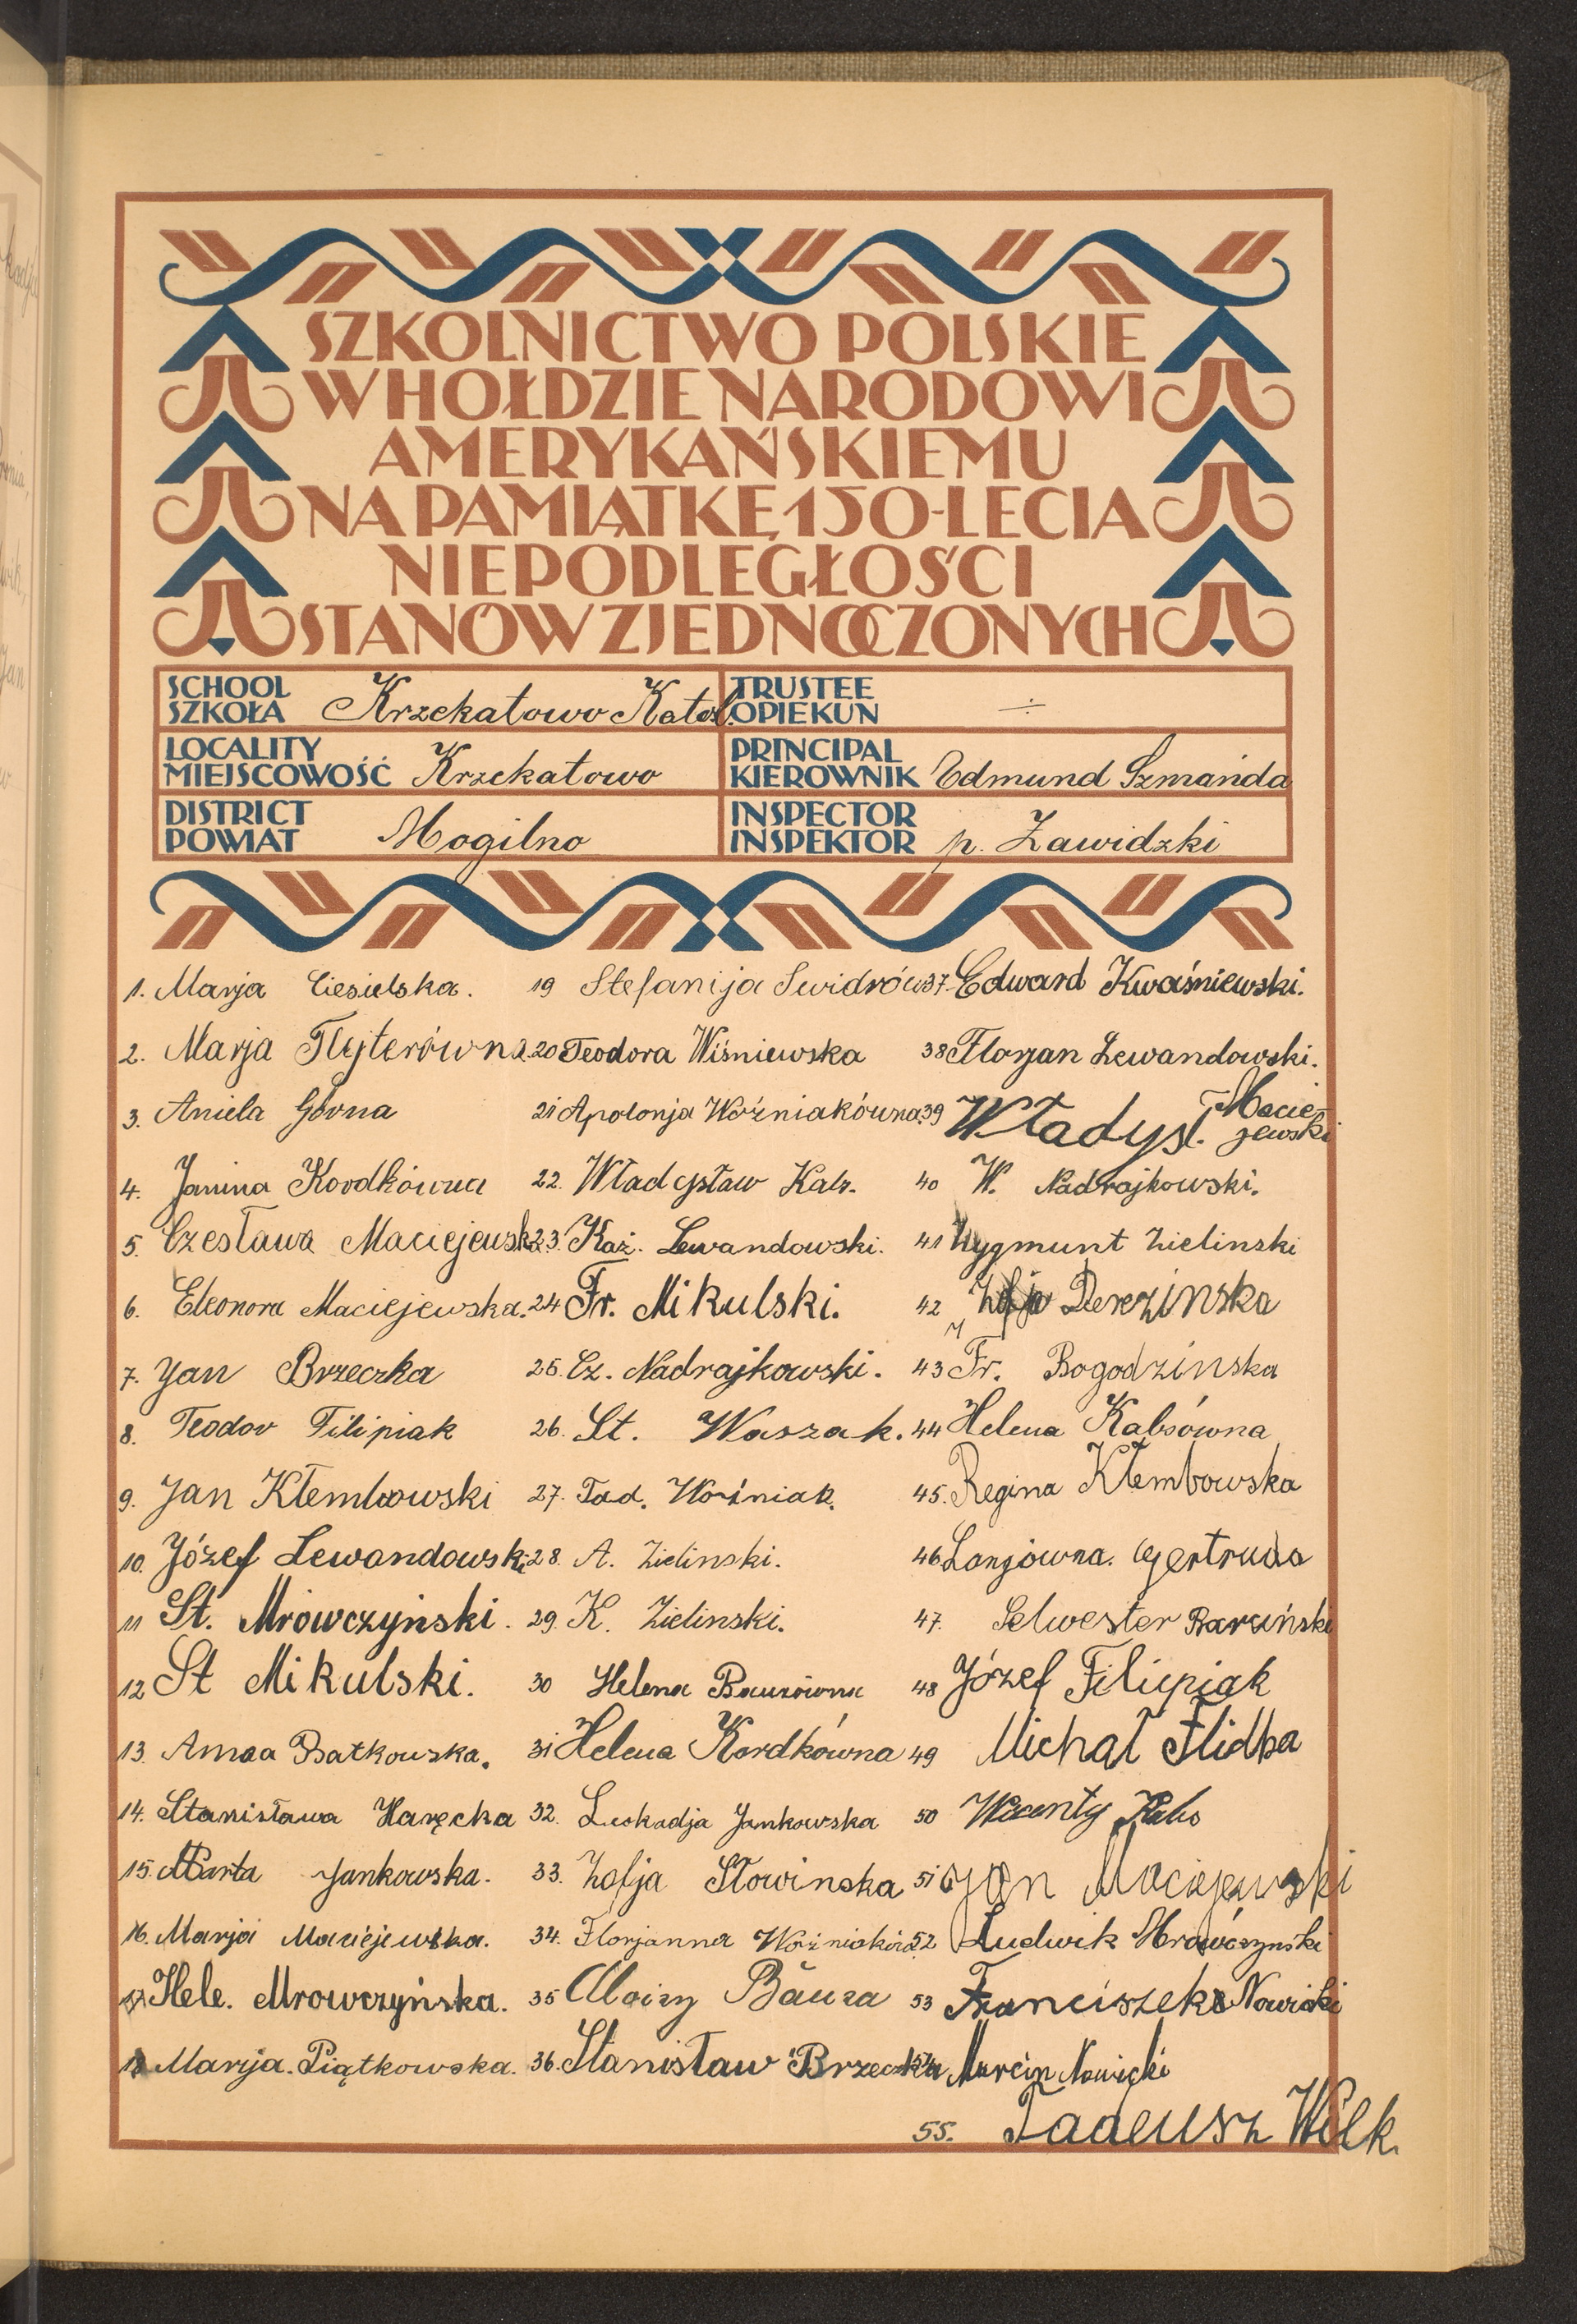 SZKOLNICTWO POLSKIE
W HOŁDZIE NARODOWI
AMERYKAŃSKIEMU
NA PAMIĄTKĘ 150-LECIA
NIEPODLEGŁOŚCI
STANÓW ZJEDNOCZONYCH
SCHOOL
SZKOŁA Krzekatowo Katol.
TRUSTEE
OPIEKUN ÷
LOCALITY
MIEJSCOWOŚĆ Krzekatowo
PRINCIPAL
KIEROWNIK Edmund Szmańda
DISTRICT
POWIAT Mogilno
INSPECTOR
INSPEKTOR p. Zawidzki
1. Marja Ciesielska.
2. Marja Flejterówna
3. Aniela Górna
4. Janina Kordkówna
5. Czesława Maciejewska
6. Eleonora Maciejewska.
7. Jan Brzeczka
8. Teodor Filipiak
9. Jan Kłembowski
10. Józef Lewandowski
11 St. Mrówczyński.
12 St Mikulski.
13. Anna Batkowska.
14. Stanisława Haręcka
15. Marta Jankowska.
16. Marja Maciejewska.
17. Hele. Mrowczyńska.
18 Marja. Piątkowska.
19 Stefanija Swidrów
20 Teodora Wiśniewska
21 Apolonja Woźniakówna
22. Władysław Kalr.
23. Kaź. Lewandowski.
24 Fr. Mikulski.
25. Cz. Nadrajkowski.
26. St. Waszak.
27. Tad. Woźniak.
28. A. Zielinski.
29. K. Zielinski.
30 Helena Bauzówna
31 Helena Kordkówna
32. Leokadja Jankowska
33. Zofja Słowinska
34. Florjanna
35 Aloizy Bauza
36. Stanisław Brzeczka
37. Edward Kwaśniewski.
38 Florjan Lewandowski.
39 Władysł. Maciejewski
40 W. Nadrajkowski.
41 Zygmunt Zielinski
42 Zofja Derezinska
43 Fr. Bogodzinska
44 Helena Kabsówna
45. Regina Kłembowska
46 Lanjówna. Gertruda
47. Selwester Barciński
48 Józef Filipiak
49 Michał
50 Wicenty Kabs
51 Jan Maciejewski
52 Ludwik Mrówczynski
53 Franciszek Nowicki
54 Marcin Nowicki
55. Tadeusz Wilk.